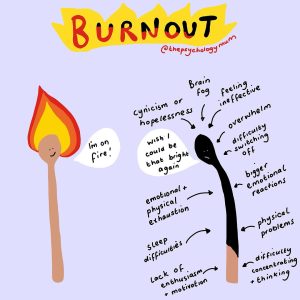 BURNOUT
@thepsychologymum
I'm on
fire!
Wish I
could be
that bright
again
cynicism or
hopelessness
Brain
fog
feeling
ineffective
overwhelm
difficulty
switching
off
bigger
emotional
reactions
emotional +
physical
exhaustion
physical
problems
sleep
difficulties
difficulty
concentrating
+ thinking
Lack of
enthusiasm
+ motivation